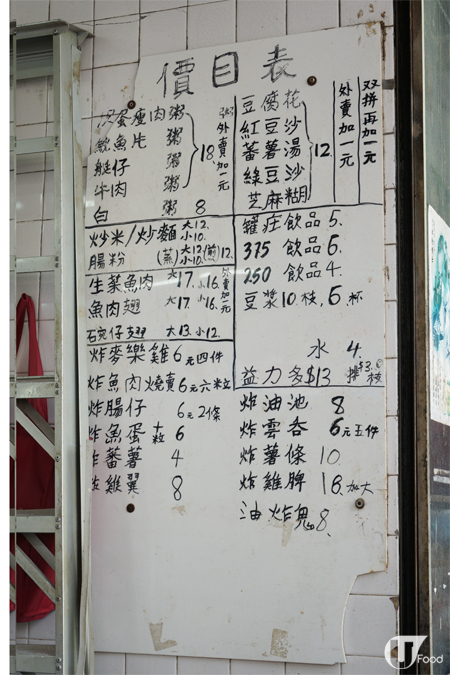 價目表
皮蛋瘦肉粥
鮫魚片 粥
艇仔 粥
牛肉 粥
18
粥外賣加一元
白 粥 8
炒米/炒麵 大12. 小10.
腸粉 (蒸) 大12 小10. (煎) 12.
生菜魚肉 大17. 小16.
魚肉翅 大17. 小16.
外賣加一元
碗仔翅 大13. 小12.
炸麥樂雞 6元四件
炸魚肉燒賣 6元六粒
炸腸仔 6元2條
炸魚蛋 十粒 6
炸蕃薯 4
炸雞翼 8
豆腐花
紅豆沙
蕃薯湯
綠豆沙
芝麻糊
12.
外賣加一元
双拼再加一元
罐庄飲品 5.
375 飲品 6.
250 飲品 4.
豆漿 10.枝, 6杯
水 4.
益力多$13 排 $3.5枝
炸油池 8
炸雲吞 6元五件
炸薯條 10.
炸雞脾 18.加大
油炸鬼 8.
U Food